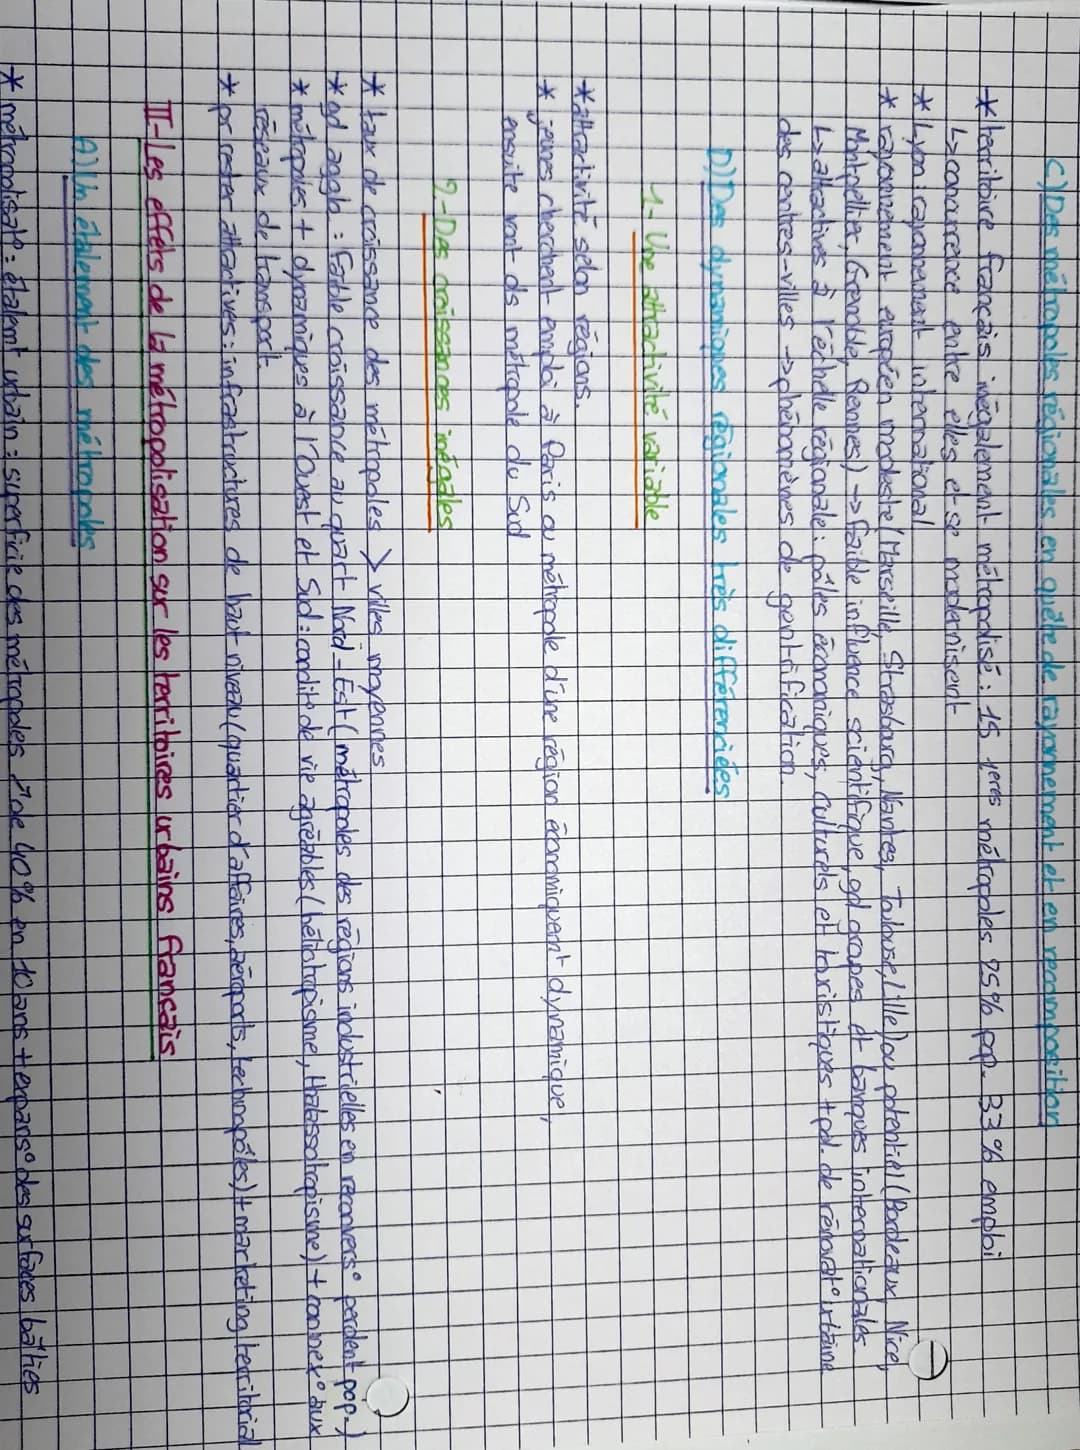 C) Des métropoles régionales en quête de rayonnement et en recomposition
* territoire français inégalement métropolisé : 15 1eres métropoles 25% pop. 33% emploi
↳ concurrence entre elles et se modernisent
* Lyon : rayonnement international
* rayonnement européen modeste (Marseille, Strasbourg, Nantes, Toulouse, Lille) ou potentiel (Bordeaux, Nice,
Montpellier, Grenoble, Rennes) → faible influence scientifique, gd groupes et banques internationales
↳ attractives à l'échelle régionale : pôles économiques, culturels et touristiques + pol. de rénovat° urbaine
des centres-villes → phénomènes de gentrification.
D) Des dynamiques régionales très différenciées
1- Une attractivité variable
* attractivité selon régions.
* jeunes cherchent emploi à Paris ou métropole d'une région économiquent dynamique,
ensuite vont ds métropole du Sud
2- Des croissances inégales
* taux de croissance des métropoles > villes moyennes
* gd agglo : faible croissance au quart Nord-Est (métropoles des régions industrielles en reconvers° perdent pop.)
* métropoles + dynamiques à l'Ouest et Sud : condit° de vie agréables (héliotropisme, thalassotropisme) + connex° aux
réseaux de transport.
* pr rester attractives : infrastructures de haut niveau (quartier d'affaires, aéroports, technopôles) + marketing territorial
II- Les effets de la métropolisation sur les territoires urbains français
A) Un étalement des métropoles
* métropolisat° : étalemt urbain : superficie des métropoles ↗ de 40% en 10 ans + expans° des surfaces bâties